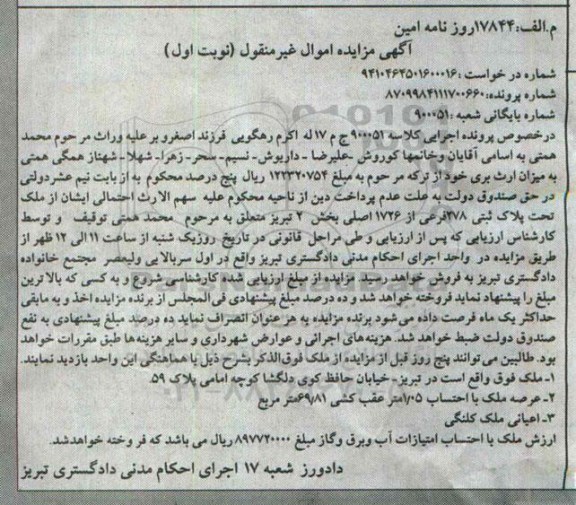 م.الف:۱۷۸۴۴روز نامه امین
آگهی مزایده اموال غیرمنقول (نوبت اول)
شماره در خواست :۹۴۱۰۴۶۴۵۰۱۶۰۰۰۱۶
شماره پرونده:۸۷۰۹۹۸۴۱۱۱۷۰۰۶۶۰
شماره بایگانی شعبه :۹۰۰۰۵۱
درخصوص پرونده اجرایی کلاسه ۹۰۰۰۵۱ ج م ۱۷ له اکرم رهگویی فرزند اصغرو بر علیه وراث مر حوم محمد
همتی به اسامی آقایان وخانمها کوروش -علیرضا - داریوش- نسیم- سحر- زهرا- شهلا- شهناز همگی همتی
به میزان ارث بری خود از ترکه مر حوم به مبلغ ۱۲۲۳۲۰۷۵۴ ریال پنج درصد محکوم به از بابت نیم عشردولتی
در حق صندوق دولت به علت عدم پرداخت دین از ناحیه محکوم علیه سهم الا رث احتمالی ایشان از ملک
تحت پلاک ثبتی ۲۷۸فرعی از ۱۷۲۶ اصلی بخش ۲ تبریز متعلق به مرحوم محمد همتی توقیف و توسط
کارشناس ارزیابی که پس از ارزیابی و طی مراحل قانونی در تاریخ روزیک شنبه از ساعت ۱۱ الی ۱۲ ظهر از
طریق مزایده در واحد اجرای احکام مدنی دادگستری تبریز واقع در اول سربالا یی ولیعصر مجتمع خانواده
دادگستری تبریز به فروش خواهد رسید مزایده از مبلغ ارزیابی شده کارشناسی شروع و به کسی که بالا ترین
مبلغ را پیشنهاد نماید فروخته خواهد شد و ده درصد مبلغ پیشنهادی فی المجلس از برنده مزایده اخذ و به مابقی
حداکثر یک ماه فرصت داده می‌شود برنده مزایده به هر عنوان انصراف نماید ده درصد مبلغ پیشنهادی به نفع
صندوق دولت ضبط خواهد شد. هزینه‌های اجرائی و عوارض شهرداری و سایر هزینه‌ها طبق مقررات خواهد
بود. طالبین می‌توانند پنج روز قبل از مزایده از ملک فوق‌الذکر بشرح ذیل با هماهنگی این واحد بازدید نمایند.
۱- ملک فوق واقع است در تبریز- خیابان حافظ کوی دلگشا کوچه امامی پلاک ۵۹
۲- عرصه ملک با احتساب ۱/۰۵متر عقب کشی ۶۹/۸۱متر مربع
۳- اعیانی ملک کلنگی
ارزش ملک با احتساب امتیازات آب وبرق وگاز مبلغ ۸۹۷۷۲۰۰۰۰ ریال می باشد که فر وخته خواهدشد.
دادورز شعبه ۱۷ اجرای احکام مدنی دادگستری تبریز